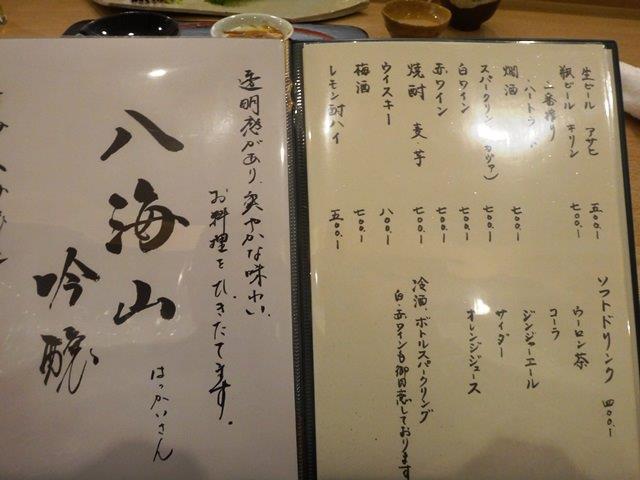 生ビール アサヒ 五〇〇.ー
瓶ビール キリン 七〇〇.ー
一番搾り
ハートランド
燗酒 七〇〇.ー
スパークリング(カヴァ) 七〇〇.ー
白ワイン 七〇〇.ー
赤ワイン 七〇〇.ー
焼酎 麦・芋 七〇〇.ー
ウイスキー 八〇〇.ー
梅酒 七〇〇.ー
レモン酎ハイ 五〇〇.ー
ソフトドリンク 四〇〇.ー
ウーロン茶
コーラ
ジンジャーエール
サイダー
オレンジジュース
冷酒、ボトルスパークリング
白・赤ワインも御用意しております
透明感があり、爽やかな味わい、
お料理をひきたてます。
八海山
吟醸
はっかいさん